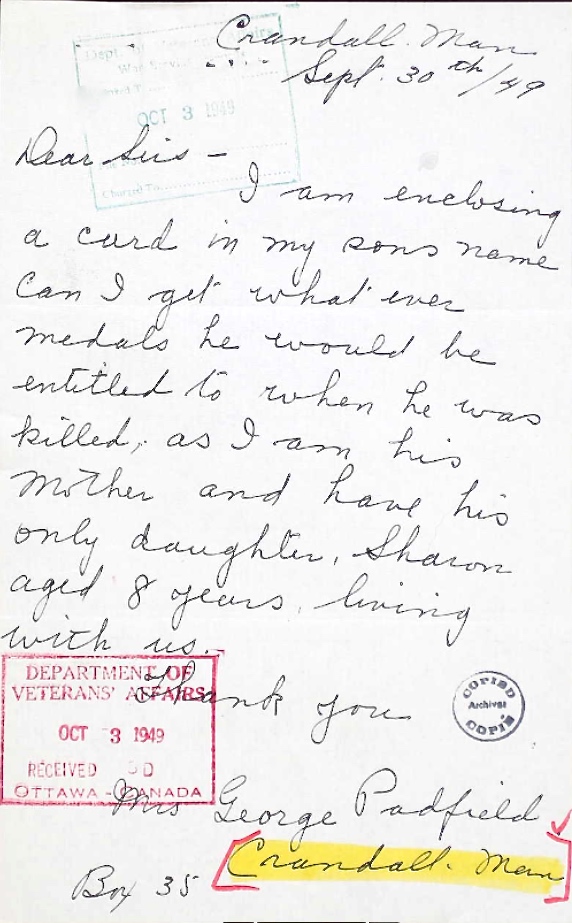 Crandall. Man
Sept. 30th/49
Dept. of Veterans Affairs
War Service
OCT 3 1949
Charged To
Dear Sirs –
I am enclosing
a card in my sons name
Can I get what ever
medals he would be
entitled to when he was
killed, as I am his
Mother and have his
only daughter, Sharon
aged 8 years, living
with us.
Thank you
DEPARTMENT OF
VETERANS' AFFAIRS
OCT 3 1949
RECEIVED
OTTAWA - CANADA
COPIED
Archives
COPIÉ
Mrs George Padfield
Crandall. Man
Box 35